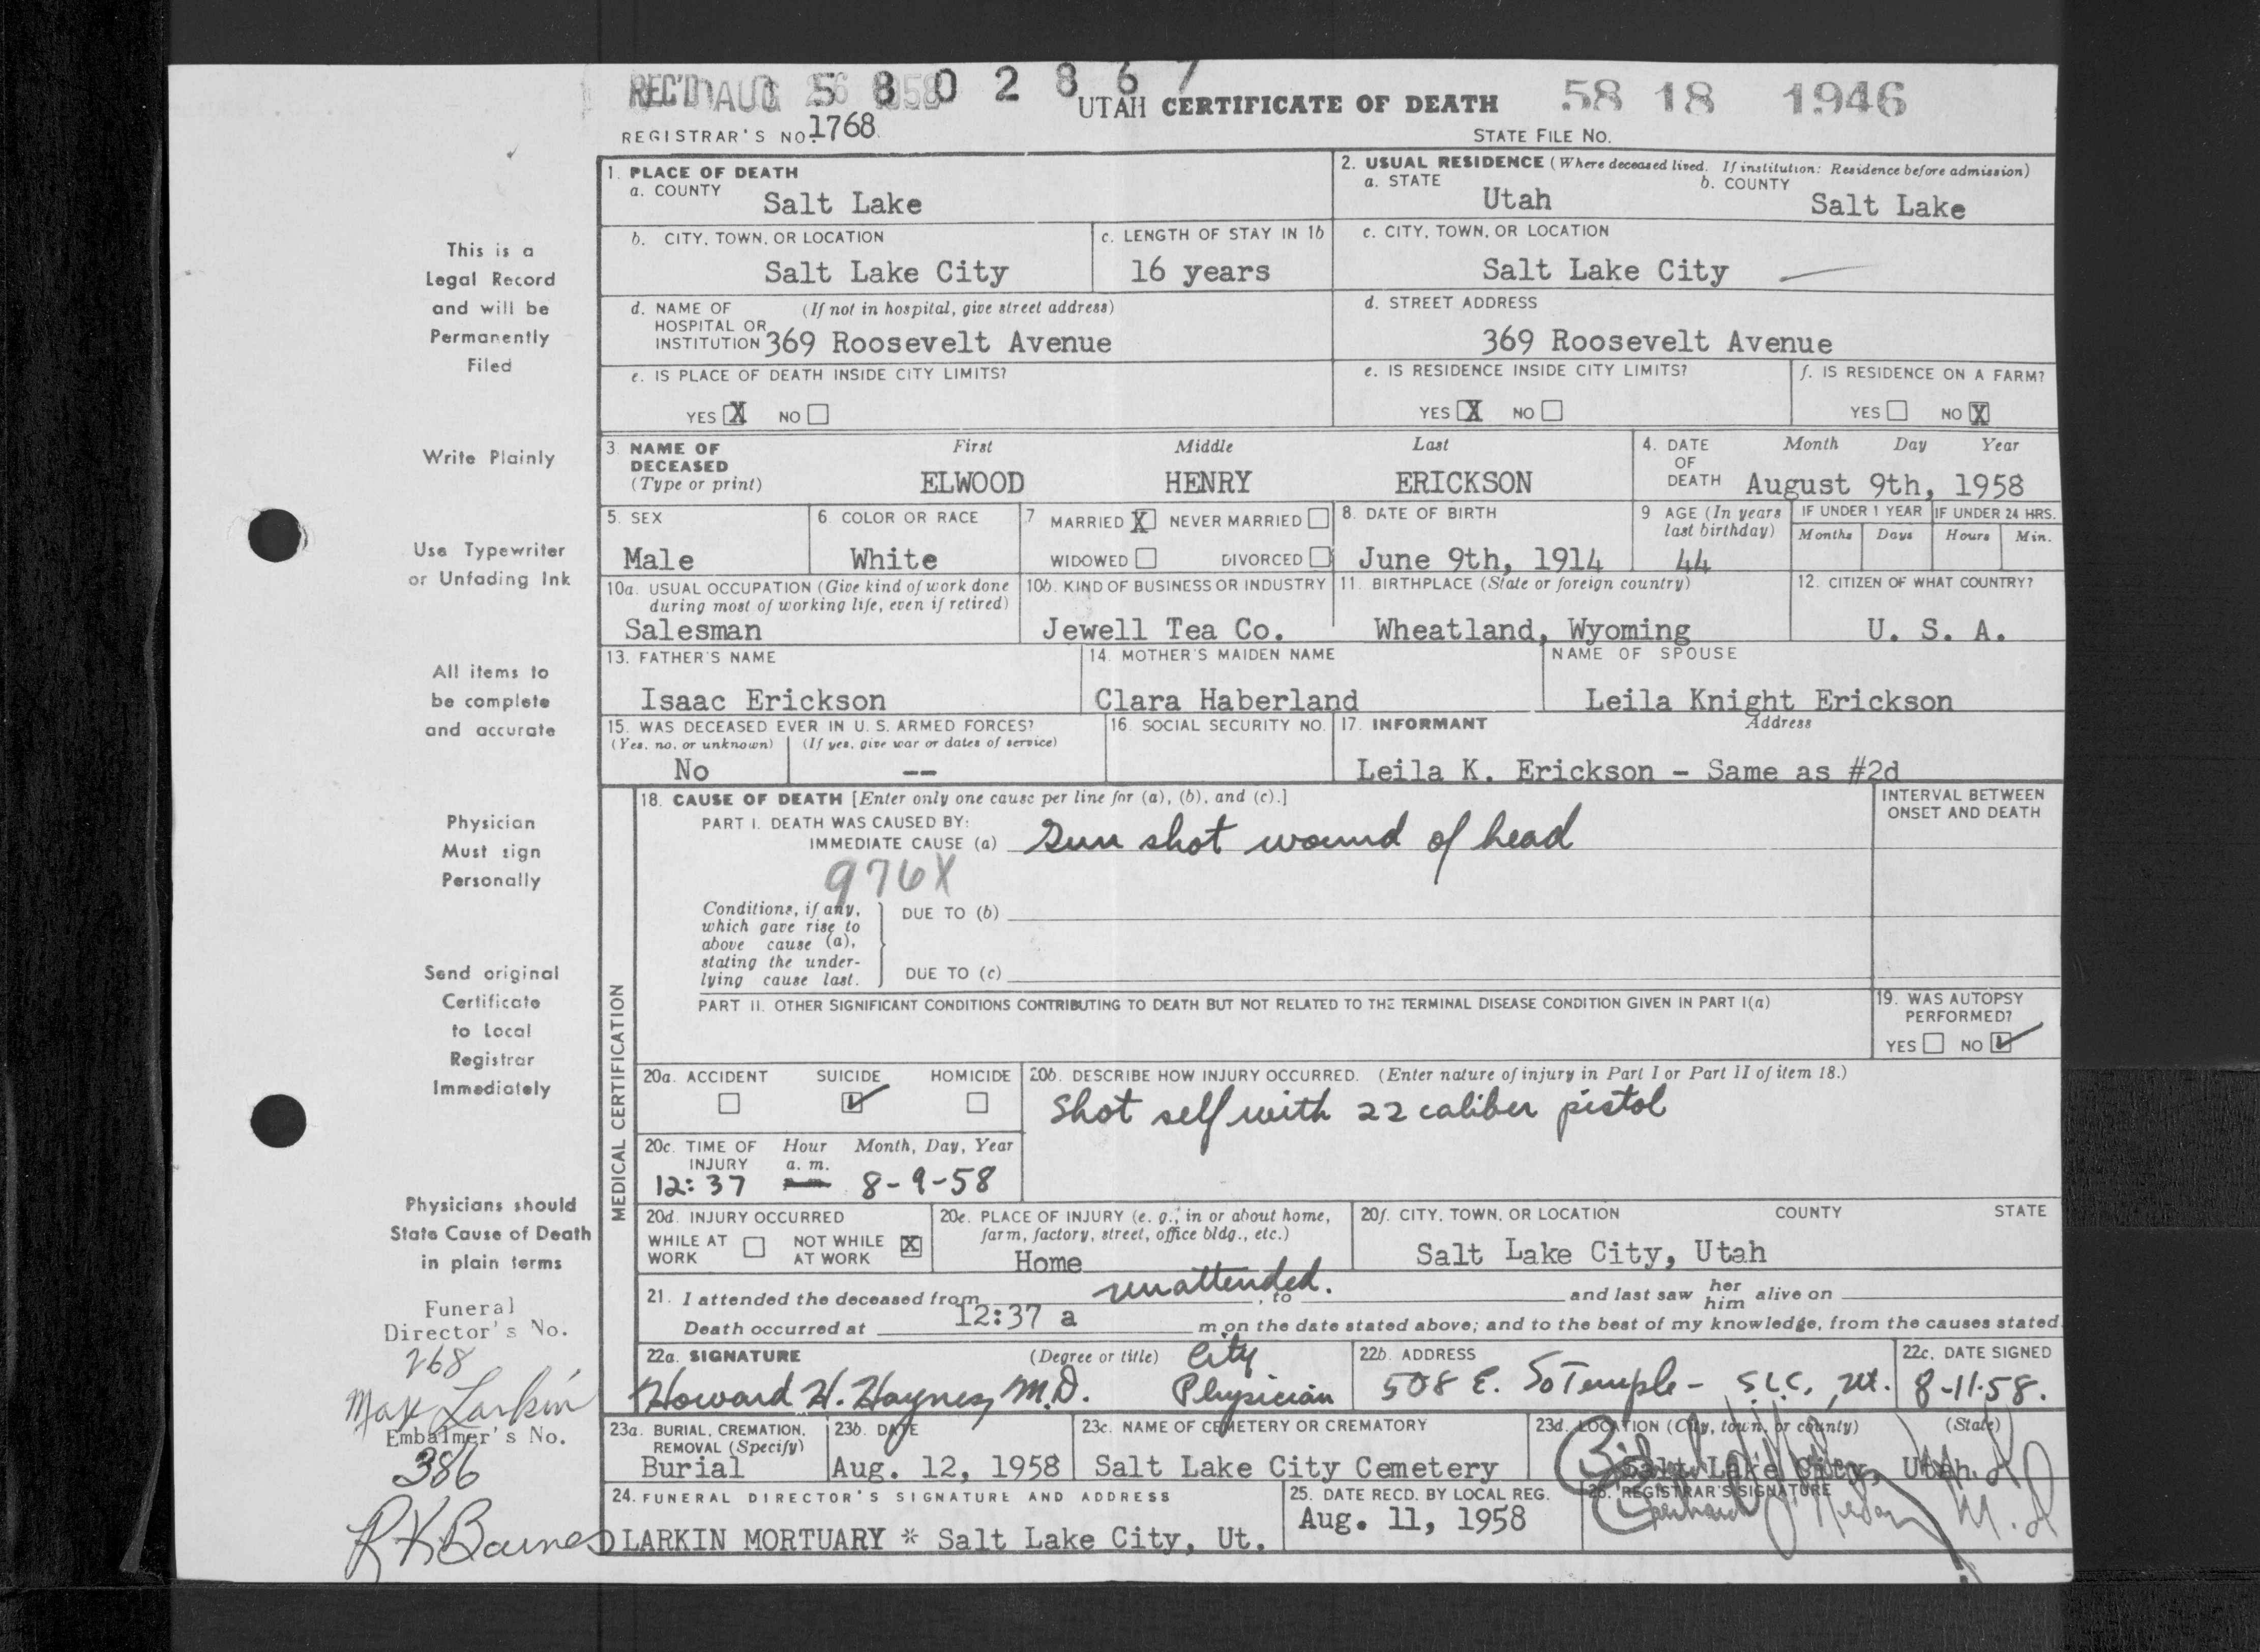 REC'D AUG 1958
5 8 0 2 8 6 7
UTAH CERTIFICATE OF DEATH
58 18 1946
REGISTRAR'S NO. 1768
STATE FILE NO.
This is a
Legal Record
and will be
Permanently
Filed
Write Plainly
Use Typewriter
or Unfading Ink
All items to
be complete
and accurate
Physician
Must sign
Personally
Send original
Certificate
to Local
Registrar
Immediately
Physicians should
State Cause of Death
in plain terms
Funeral
Director's No.
268
Max Larkin
Embalmer's No.
386
1. PLACE OF DEATH
a. COUNTY
Salt Lake
2. USUAL RESIDENCE (Where deceased lived. If institution: Residence before admission)
a. STATE
Utah
b. COUNTY
Salt Lake
b. CITY, TOWN, OR LOCATION
Salt Lake City
c. LENGTH OF STAY IN 1b
16 years
c. CITY, TOWN, OR LOCATION
Salt Lake City
d. NAME OF (If not in hospital, give street address)
HOSPITAL OR
INSTITUTION 369 Roosevelt Avenue
d. STREET ADDRESS
369 Roosevelt Avenue
e. IS PLACE OF DEATH INSIDE CITY LIMITS?
YES X NO
e. IS RESIDENCE INSIDE CITY LIMITS?
YES X NO
f. IS RESIDENCE ON A FARM?
YES NO X
3. NAME OF
DECEASED
(Type or print)
First Middle Last
ELWOOD HENRY ERICKSON
4. DATE
OF
DEATH
Month Day Year
August 9th, 1958
5. SEX
Male
6. COLOR OR RACE
White
7 MARRIED X NEVER MARRIED
WIDOWED DIVORCED
8. DATE OF BIRTH
June 9th, 1914
9 AGE (In years
last birthday)
44
IF UNDER 1 YEAR
Months Days
IF UNDER 24 HRS.
Hours Min.
10a. USUAL OCCUPATION (Give kind of work done
during most of working life, even if retired)
Salesman
10b. KIND OF BUSINESS OR INDUSTRY
Jewell Tea Co.
11. BIRTHPLACE (State or foreign country)
Wheatland, Wyoming
12. CITIZEN OF WHAT COUNTRY?
U. S. A.
13. FATHER'S NAME
Isaac Erickson
14. MOTHER'S MAIDEN NAME
Clara Haberland
NAME OF SPOUSE
Leila Knight Erickson
15. WAS DECEASED EVER IN U. S. ARMED FORCES?
(Yes, no, or unknown) (If yes, give war or dates of service)
No --
16. SOCIAL SECURITY NO.
17. INFORMANT Address
Leila K. Erickson - Same as #2d
MEDICAL CERTIFICATION
18. CAUSE OF DEATH [Enter only one cause per line for (a), (b), and (c).]
PART I. DEATH WAS CAUSED BY:
IMMEDIATE CAUSE (a) Gun shot wound of head
976X
INTERVAL BETWEEN
ONSET AND DEATH
Conditions, if any,
which gave rise to
above cause (a),
stating the under-
lying cause last.
DUE TO (b)
DUE TO (c)
PART II. OTHER SIGNIFICANT CONDITIONS CONTRIBUTING TO DEATH BUT NOT RELATED TO THE TERMINAL DISEASE CONDITION GIVEN IN PART I(a)
19. WAS AUTOPSY
PERFORMED?
YES NO ✓
20a. ACCIDENT SUICIDE HOMICIDE
✓
20b. DESCRIBE HOW INJURY OCCURRED. (Enter nature of injury in Part I or Part II of item 18.)
Shot self with 22 caliber pistol
20c. TIME OF Hour Month, Day, Year
INJURY a. m.
12:37 8-9-58
20d. INJURY OCCURRED
WHILE AT NOT WHILE X
WORK AT WORK
20e. PLACE OF INJURY (e. g., in or about home,
farm, factory, street, office bldg., etc.)
Home
20f. CITY, TOWN, OR LOCATION COUNTY STATE
Salt Lake City, Utah
21. I attended the deceased from unattended. , to and last saw her him alive on
Death occurred at 12:37 a m on the date stated above; and to the best of my knowledge, from the causes stated
22a. SIGNATURE (Degree or title)
Howard H. Haynes, M.D. City Physician
22b. ADDRESS
508 E. So Temple - S.L.C., Ut.
22c. DATE SIGNED
8-11-58.
23a. BURIAL, CREMATION,
REMOVAL (Specify)
Burial
23b. DATE
Aug. 12, 1958
23c. NAME OF CEMETERY OR CREMATORY
Salt Lake City Cemetery
23d. LOCATION (City, town, or county) (State)
Salt Lake City, Utah
24. FUNERAL DIRECTOR'S SIGNATURE AND ADDRESS
R K Barnes
LARKIN MORTUARY * Salt Lake City, Ut.
25. DATE RECD. BY LOCAL REG.
Aug. 11, 1958
26. REGISTRAR'S SIGNATURE
M.D